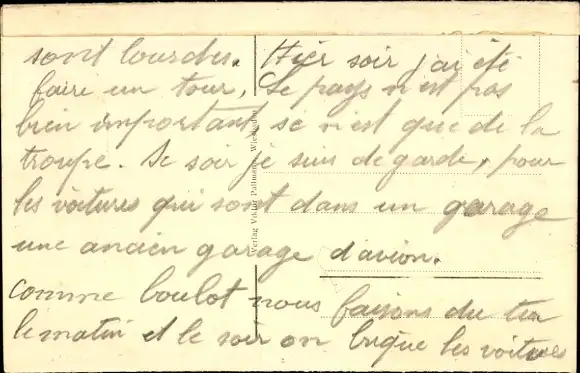 sont lourdes. Hier soir j'ai été
faire un tour, Le pays n'est pas
bien important, se n'est que de la
troupe. Se soir je suis de garde, pour
les voitures qui sont dans un garage
une ancien garage d'avion.
comme boulot nous faisons du tir
le matin et le soir on brique les voitures
Verlag Viktor